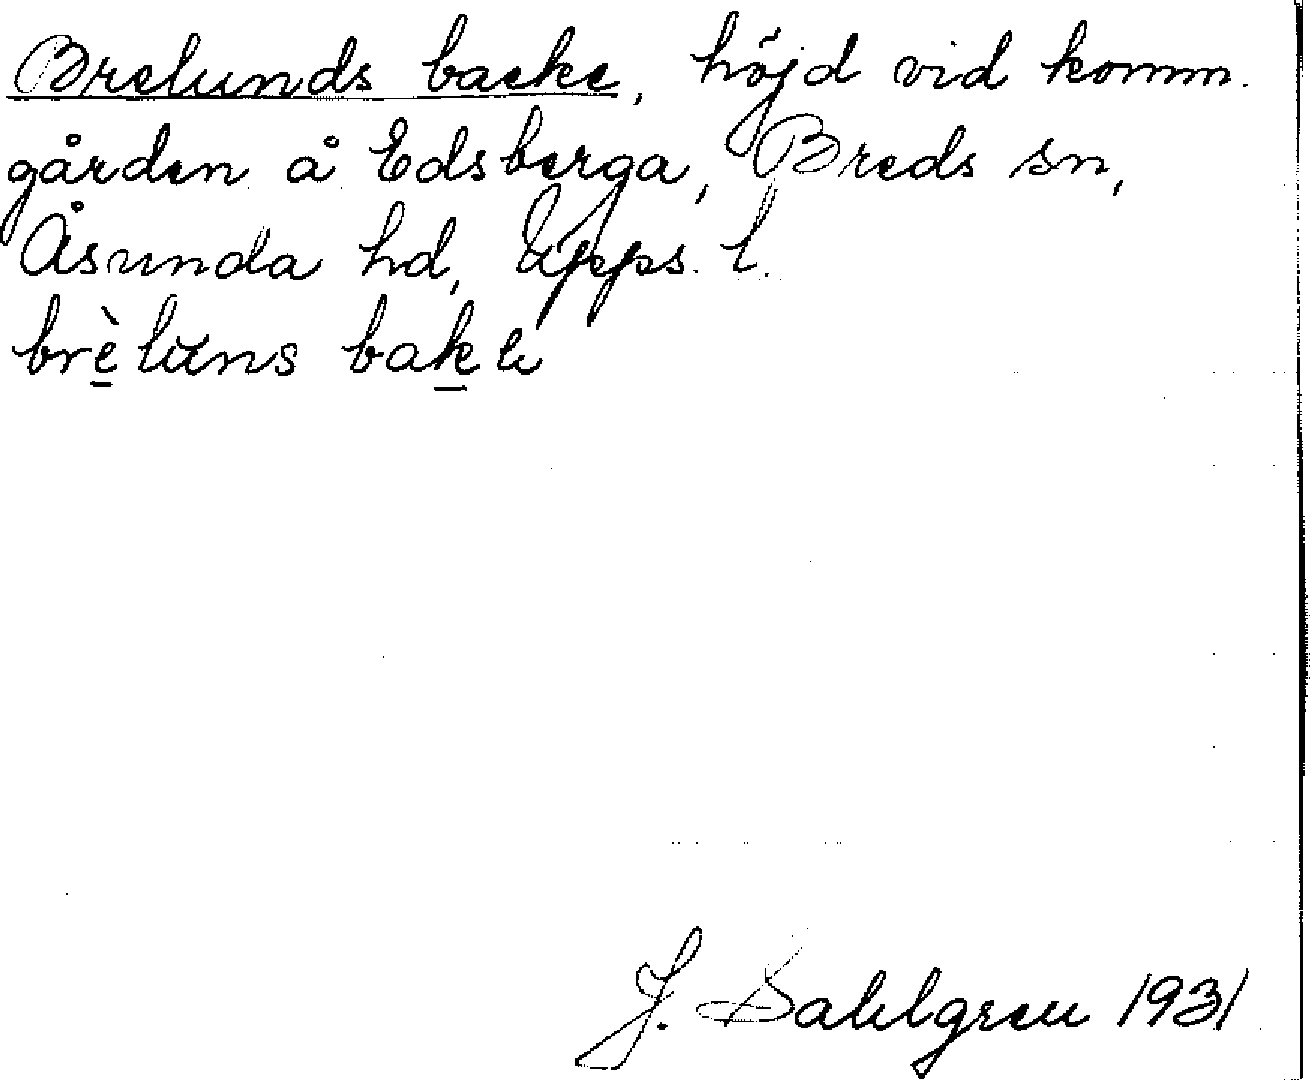 Brelunds backe, höjd vid komm.
gården å Edsberga, Breds sn,
Åsunda hd, Upps. l.
brè̱luns baḵe
J. Sahlgren 1931